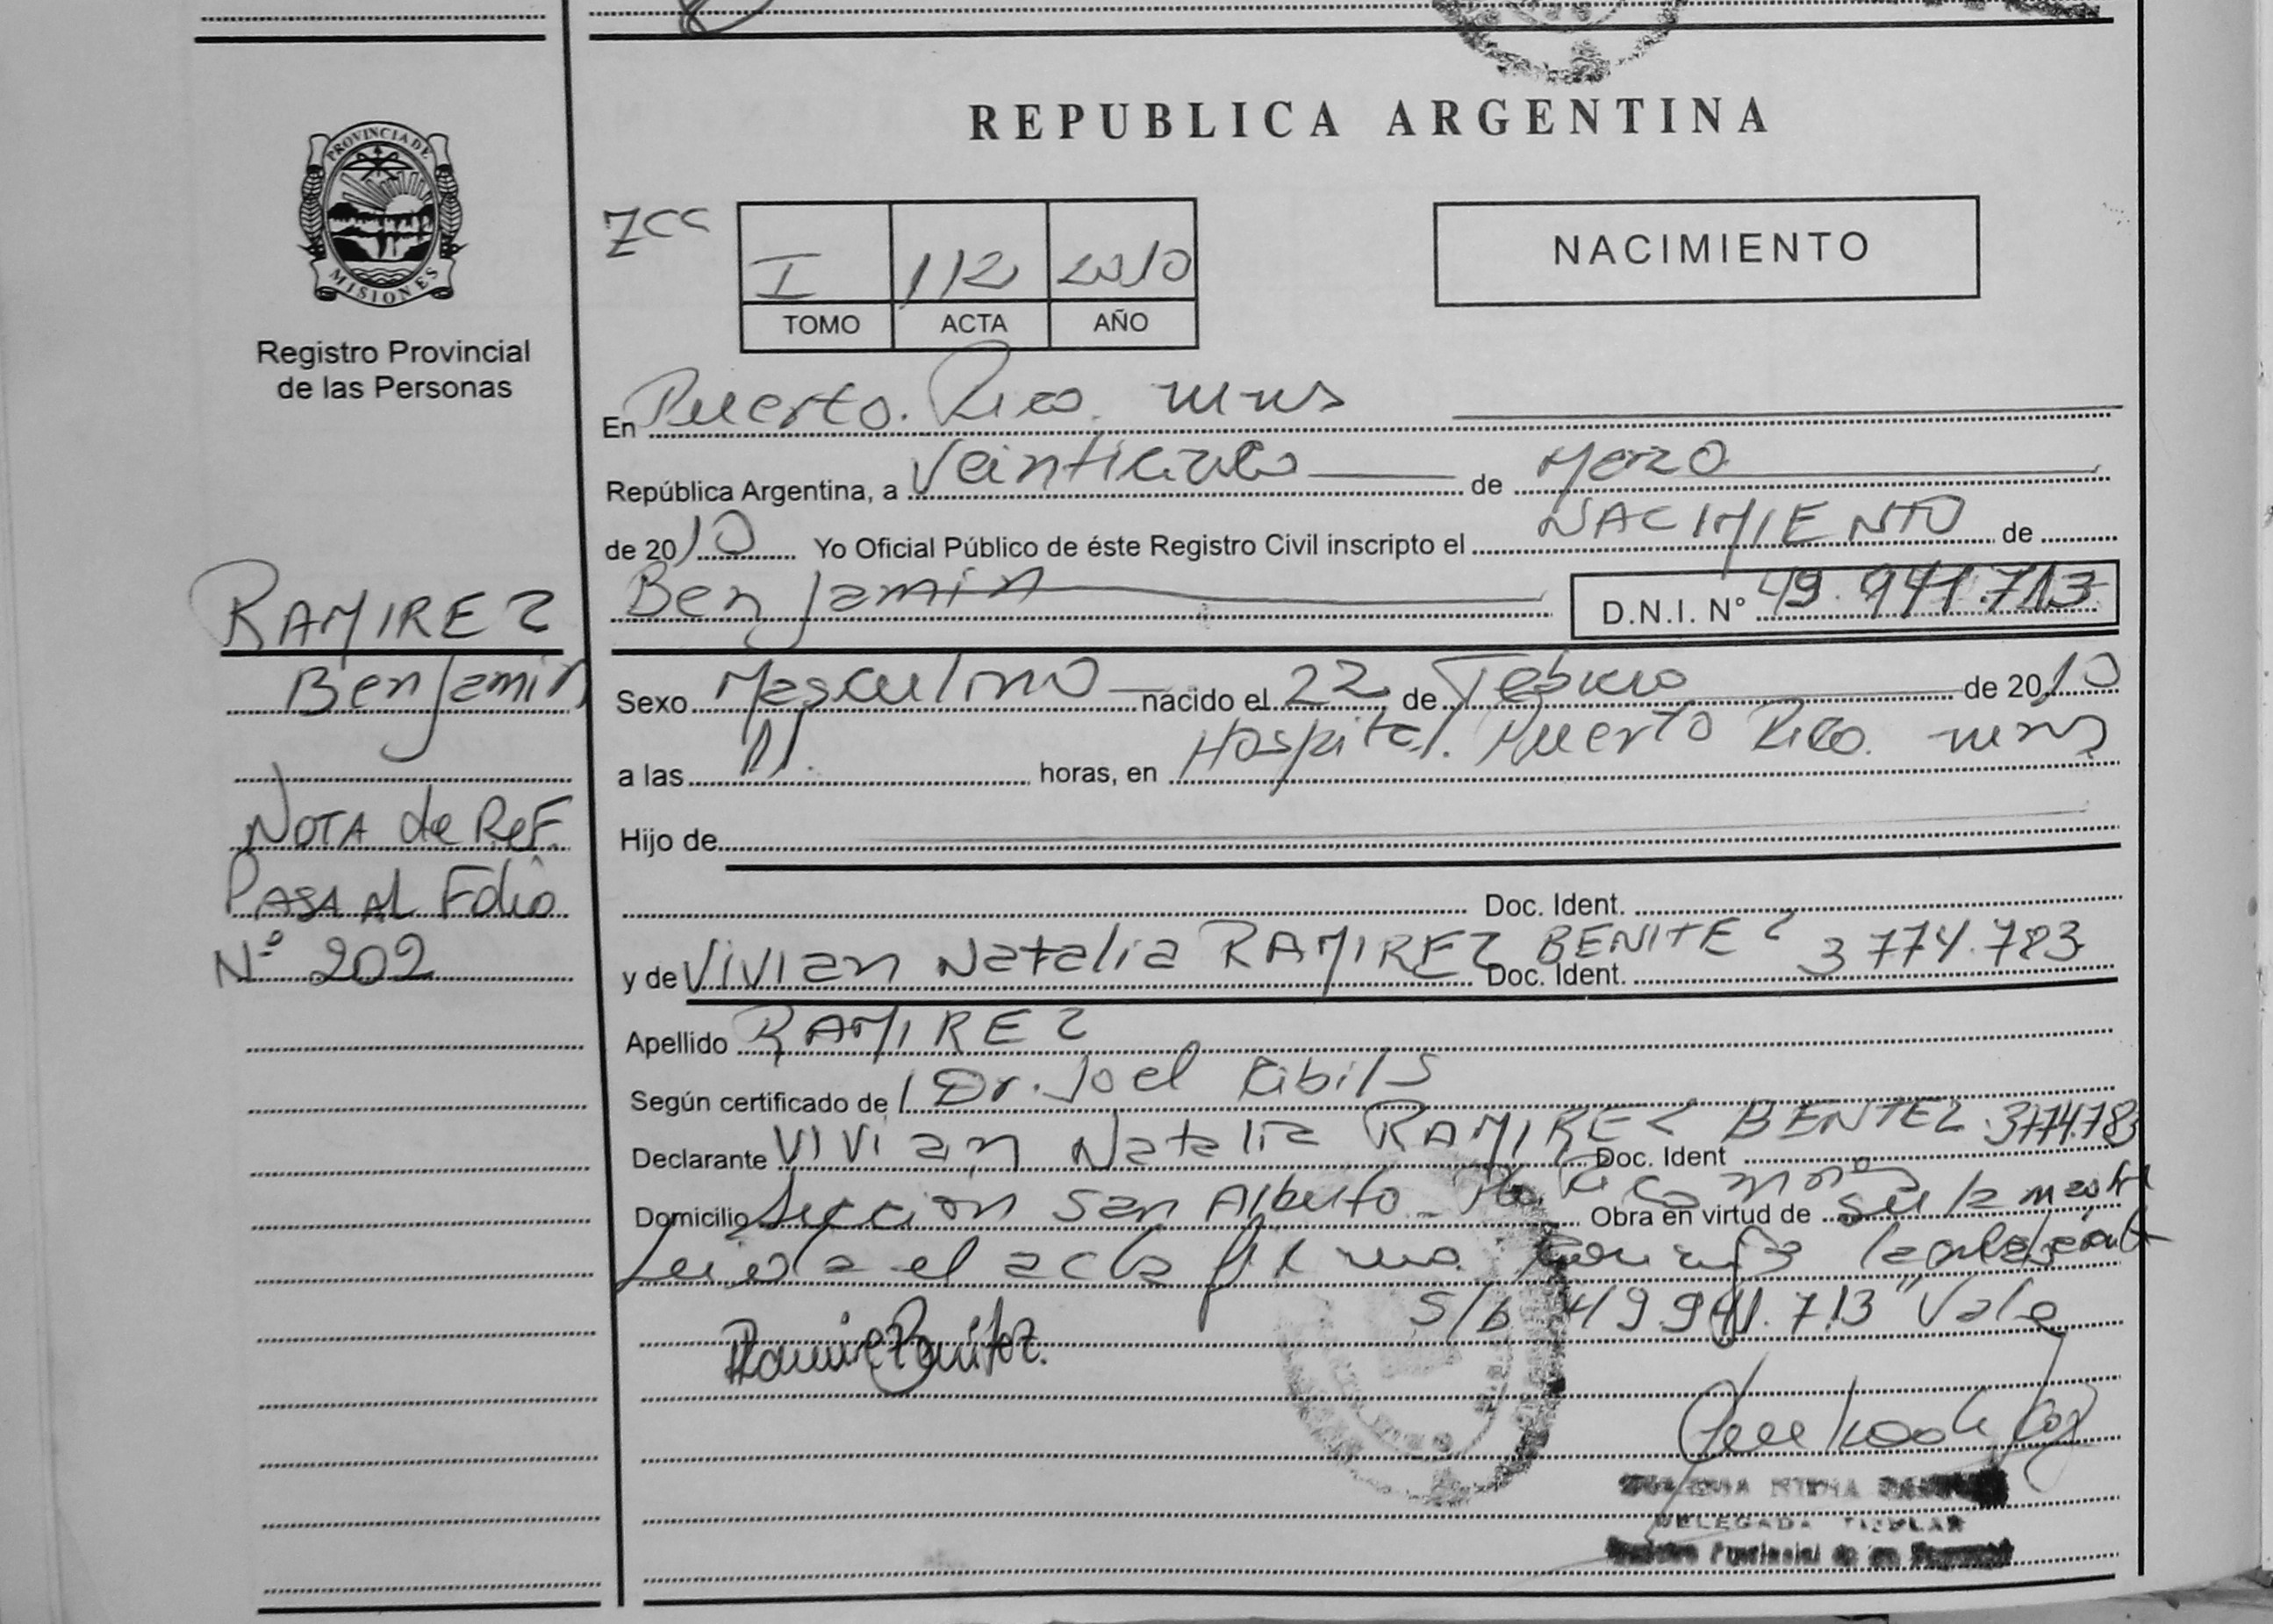 PROVINCIA DE
MISIONES
Registro Provincial
de las Personas
RAMIREZ
Benjamin
NOTA de REF.
PASA AL Folio
Nº 202
REPUBLICA ARGENTINA
I 112 2010
TOMO ACTA AÑO
NACIMIENTO
En Puerto. Rico. mns
República Argentina, a de Marzo
de 2010 Yo Oficial Público de éste Registro Civil inscripto el NACIMIENTO de
Benjamin D.N.I. Nº 49.941.713
Sexo Masculino nacido el 22 de Febrero de 2010
a las 11. horas, en Hospital. Puerto Rico. mns
Hijo de
Doc. Ident.
y de Vivian Natalia RAMIREZ BENITEZ Doc. Ident. 3774.783
Apellido RAMIREZ
Según certificado de Dr. Joel
Declarante Vivian Natalia RAMIREZ BENTEZ Doc. Ident 3774.783
Domicilio Seccion San Alberto Obra en virtud de
Leida el acta
S/b 49941.713 "Vale
Ramirez Benitez.
DELEGADA TITULAR